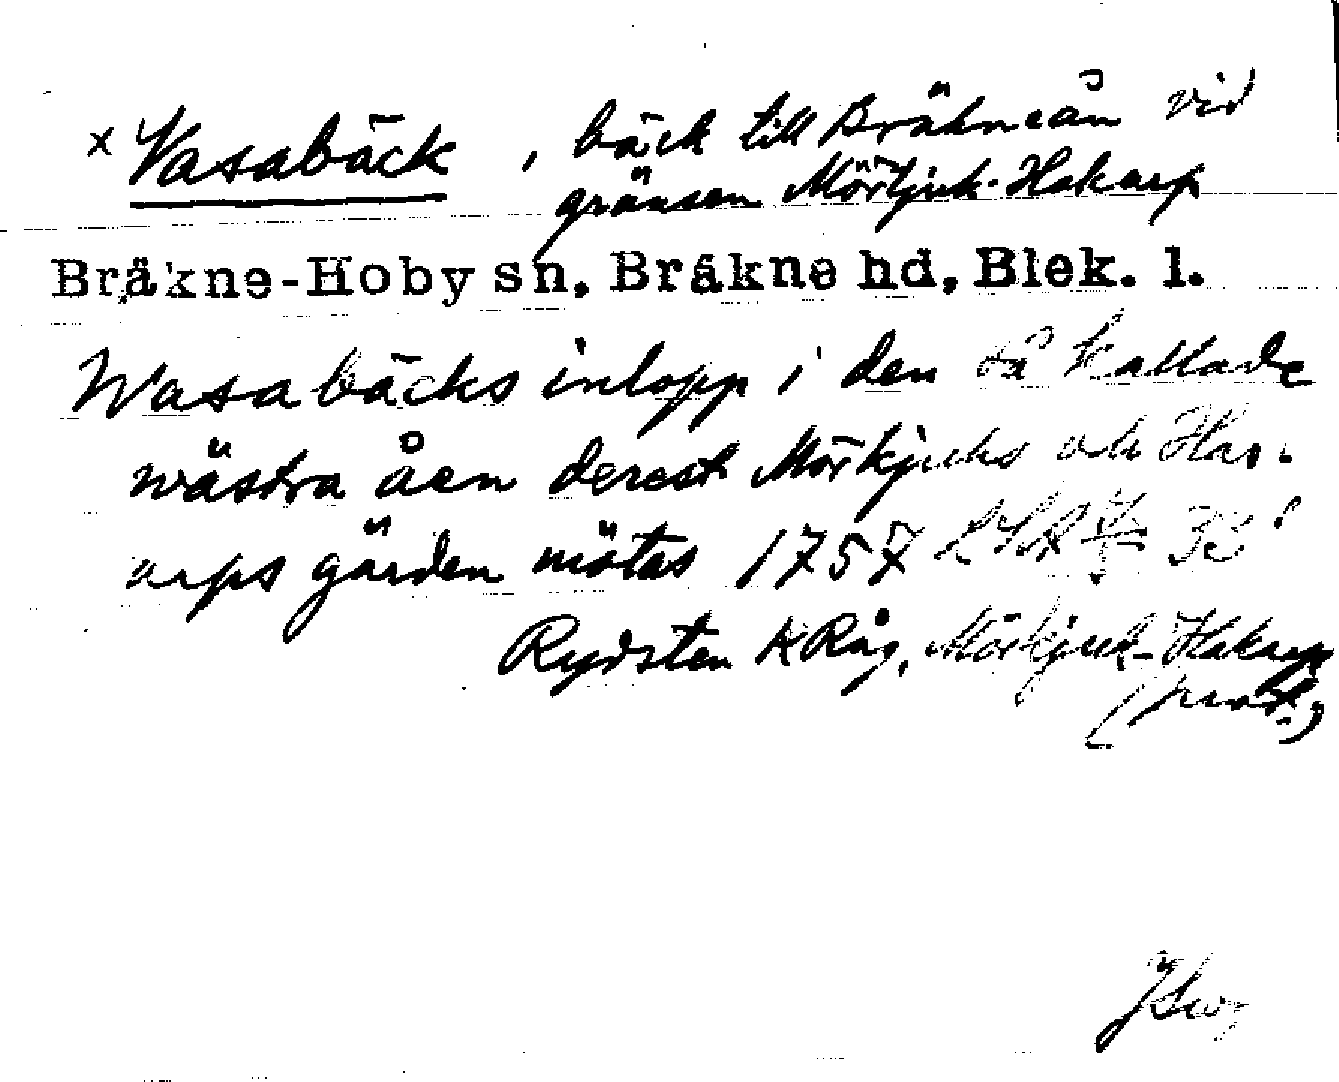 x Vasabäck, bäck till Bräkneån vid
gränsen Mörkjuk-Hakarp
Bräkne-Hoby sn. Bräkne hd, Blek. l.
Wasabäcks inlopp i den så kallade
wästra åen derest Mörkjuks och Hac-
arps gärden mötas 1757 LSA 33
Rydsten KRåg, Mörkjuk-Hakarp
(prot.)